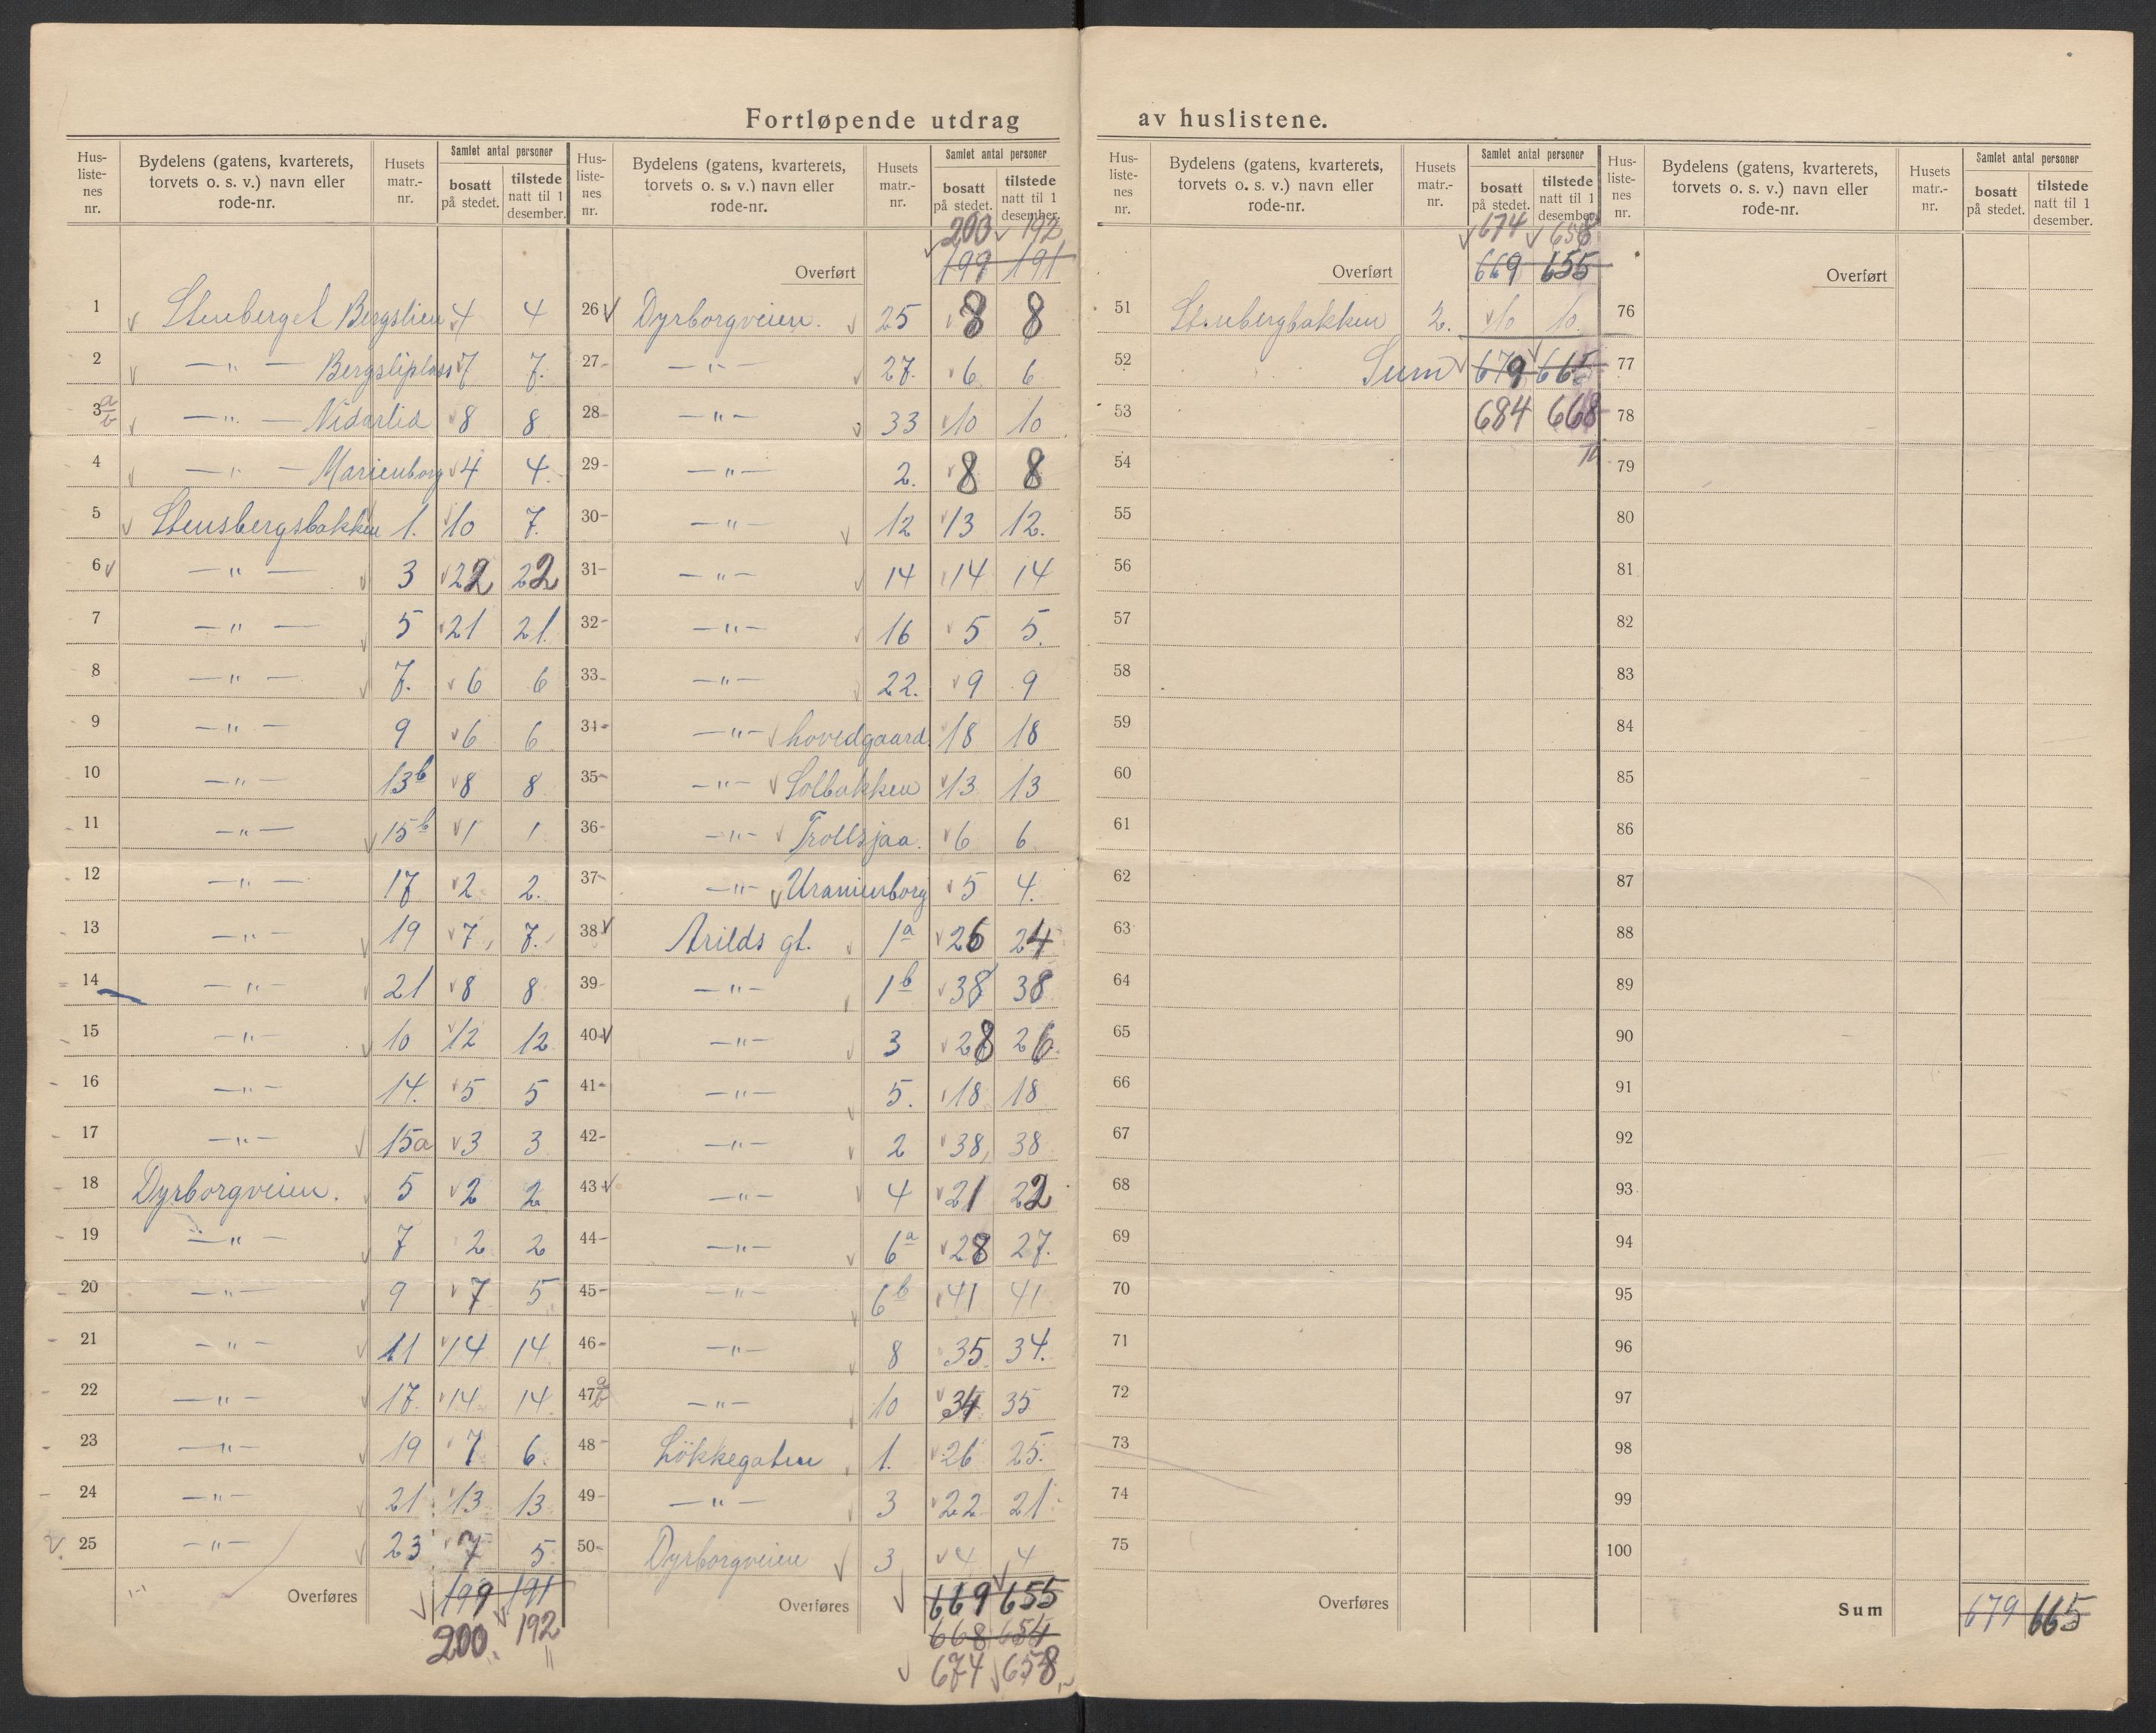 Fortløpende utdrag av huslistene.
Hus-listenes nr. | Bydelens (gatens, kvarterets, torvets o. s. v.) navn eller rode-nr. | Husets matr.-nr. | Samlet antal personer | bosatt på stedet. | tilstede natt til 1 desember.
1 Stenberget Bergslien 4 4
2 —"— Bergsliplass 7 7.
3 a/b —"— Nidarlid 8 8
4 —"— Marienborg 4 4.
5 Stensbergsbakken 1. 10 7.
6 —"— 3 22 22
7 —"— 5 21 21.
8 —"— 7. 6 6
9 —"— 9 6 6
10 —"— 13b 8 8
11 —"— 15b 1 1
12 —"— 17 2 2.
13 —"— 19 7 7.
14 —"— 21 8 8
15 —"— 10 12 12
16 —"— 14. 5 5
17 —"— 15a 3 3
18 Dyrborgveien. 5 2 2
19 —"— 7 2 2
20 —"— 9 7 5
21 —"— 11 14 14
22 —"— 17. 14 14
23 —"— 19 7 6
24 —"— 21 13 13
25 —"— 23 7 5
Overføres 199 191
200 192
Hus-listenes nr. | Bydelens (gatens, kvarterets, torvets o. s. v.) navn eller rode-nr. | Husets matr.-nr. | Samlet antal personer | bosatt på stedet. | tilstede natt til 1 desember.
200 192
Overført 199 191
26 Dyrborgveien. 25 8 8
27 —"— 27. 6 6
28 —"— 33 10 10
29 —"— 2. 8 8
30 —"— 12 13 12.
31 —"— 14 14 14
32 —"— 16 5 5.
33 —"— 22. 9 9
34 —"— hovedgaard 18 18
35 —"— Solbakken 13 13
36 —"— Trollsjaa. 6 6
37 —"— Uranienborg 5 4.
38 Arilds gt. 1a 26 24
39 —"— 1b 38 38
40 —"— 3 28 26.
41 —"— 5. 18 18
42 —"— 2 38 38
43 —"— 4 21 22
44 —"— 6a 28 27.
45 —"— 6b 41 41
46 —"— 8 35 34.
47 a/b —"— 10 34 35
48 Løkkegaten 1. 26 25.
49 —"— 3 22 21
50 Dyrborgveien 3 4 4
Overføres 669 655
668 654
674 658
Hus-listenes nr. | Bydelens (gatens, kvarterets, torvets o. s. v.) navn eller rode-nr. | Husets matr.-nr. | Samlet antal personer | bosatt på stedet. | tilstede natt til 1 desember.
674 658
Overført 669 655
51 Stenbergbakken 2. 10 10.
52 Sum 679 665
53 684 668
54
55
56
57
58
59
60
61
62
63
64
65
66
67
68
69
70
71
72
73
74
75
Overføres
Hus-listenes nr. | Bydelens (gatens, kvarterets, torvets o. s. v.) navn eller rode-nr. | Husets matr.-nr. | Samlet antal personer | bosatt på stedet. | tilstede natt til 1 desember.
Overført
76
77
78
79
80
81
82
83
84
85
86
87
88
89
90
91
92
93
94
95
96
97
98
99
100
Sum 679 665